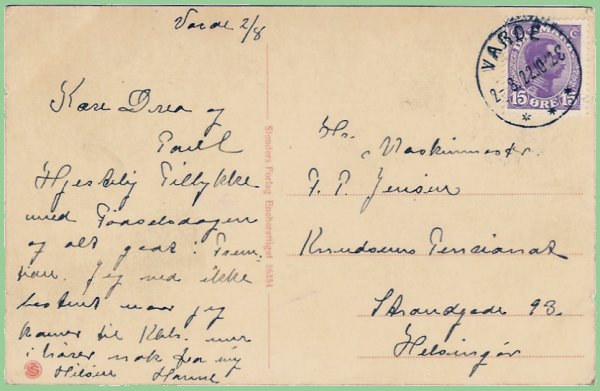 Varde 2/8
Kære Drea og
Poul
Hjertelig Tillykke
med Fødselsdagen
og alt godt i Frem-
tiden. Jeg ved ikke
bestemt naar jeg
kommer til Kbh. men
i hører nok fra mig
Hilsen Hanne
Stenders Forlag Eneberettiget 36354
VARDE
2.-8.22.10-2E
DANMARK
15 ØRE 15
Hr. Maskinmester
J. P. Jensen
Knudsens Pensionat
Strandgade 93.
Helsingør
S